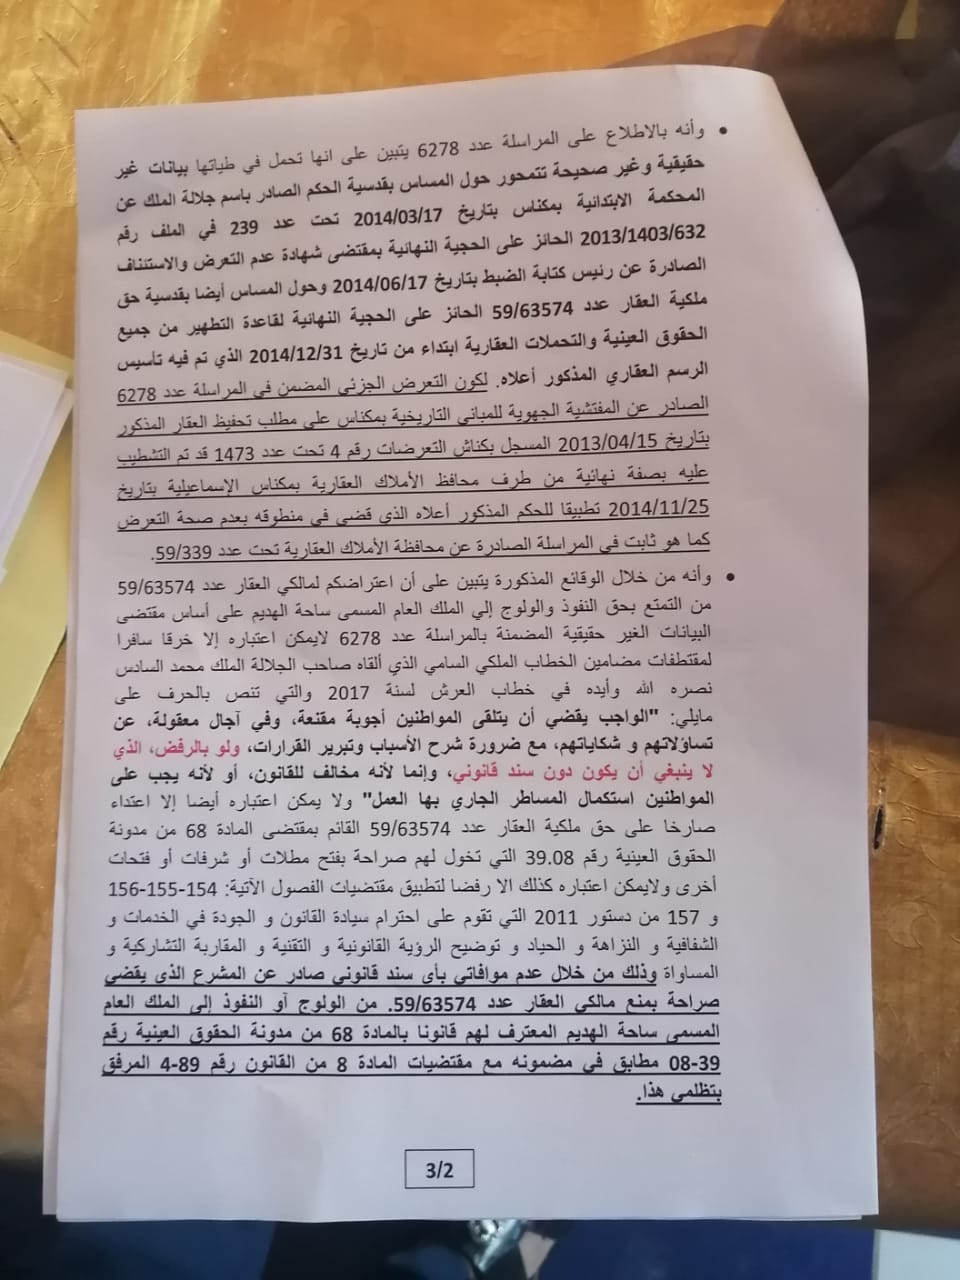 • وأنه بالاطلاع على المراسلة عدد 6278 يتبين على انها تحمل في طياتها بيانات غير
حقيقية وغير صحيحة تتمحور حول المساس بقدسية الحكم الصادر باسم جلالة الملك عن
المحكمة الابتدائية بمكناس بتاريخ 2014/03/17 تحت عدد 239 في الملف رقم
2013/1403/632 الحائز على الحجية النهائية بمقتضى شهادة عدم التعرض والاستئناف
الصادرة عن رئيس كتابة الضبط بتاريخ 2014/06/17 وحول المساس أيضا بقدسية حق
ملكية العقار عدد 59/63574 الحائز على الحجية النهائية لقاعدة التطهير من جميع
الحقوق العينية والتحملات العقارية ابتداء من تاريخ 2014/12/31 الذي تم فيه تأسيس
الرسم العقاري المذكور أعلاه. لكون التعرض الجزئي المضمن في المراسلة عدد 6278
الصادر عن المفتشية الجهوية للمباني التاريخية بمكناس على مطلب تحفيظ العقار المذكور
بتاريخ 2013/04/15 المسجل بكناش التعرضات رقم 4 تحت عدد 1473 قد تم التشطيب
عليه بصفة نهائية من طرف محافظ الأملاك العقارية بمكناس الإسماعيلية بتاريخ
2014/11/25 تطبيقا للحكم المذكور أعلاه الذي قضى في منطوقه بعدم صحة التعرض
كما هو ثابت في المراسلة الصادرة عن محافظة الأملاك العقارية تحت عدد 59/339.
• وأنه من خلال الوقائع المذكورة يتبين على أن اعتراضكم لمالكي العقار عدد 59/63574
من التمتع بحق النفوذ والولوج إلي الملك العام المسمى ساحة الهديم على أساس مقتضى
البيانات الغير حقيقية المضمنة بالمراسلة عدد 6278 لايمكن اعتباره إلا خرقا سافرا
لمقتطفات مضامين الخطاب الملكي السامي الذي ألقاه صاحب الجلالة الملك محمد السادس
نصره الله وأيده في خطاب العرش لسنة 2017 والتي تنص بالحرف على
مايلي: "الواجب يقضي أن يتلقى المواطنين أجوبة مقنعة، وفي آجال معقولة، عن
تساؤلاتهم و شكاياتهم، مع ضرورة شرح الأسباب وتبرير القرارات، ولو بالرفض، الذي
لا ينبغي أن يكون دون سند قانوني، وإنما لأنه مخالف للقانون، أو لأنه يجب على
المواطنين استكمال المساطر الجاري بها العمل" ولا يمكن اعتباره أيضا إلا اعتداء
صارخا على حق ملكية العقار عدد 59/63574 القائم بمقتضى المادة 68 من مدونة
الحقوق العينية رقم 39.08 التي تخول لهم صراحة بفتح مطلات أو شرفات أو فتحات
أخرى ولايمكن اعتباره كذلك الا رفضا لتطبيق مقتضيات الفصول الآتية: 154-155-156
و 157 من دستور 2011 التي تقوم على احترام سيادة القانون و الجودة في الخدمات و
الشفافية و النزاهة و الحياد و توضيح الرؤية القانونية و التقنية و المقاربة التشاركية و
المساواة وذلك من خلال عدم موافاتي بأي سند قانوني صادر عن المشرع الذي يقضي
صراحة بمنع مالكي العقار عدد 59/63574. من الولوج أو النفوذ إلى الملك العام
المسمى ساحة الهديم المعترف لهم قانونا بالمادة 68 من مدونة الحقوق العينية رقم
39-08 مطابق في مضمونه مع مقتضيات المادة 8 من القانون رقم 89-4 المرفق
بتظلمي هذا.
3/2